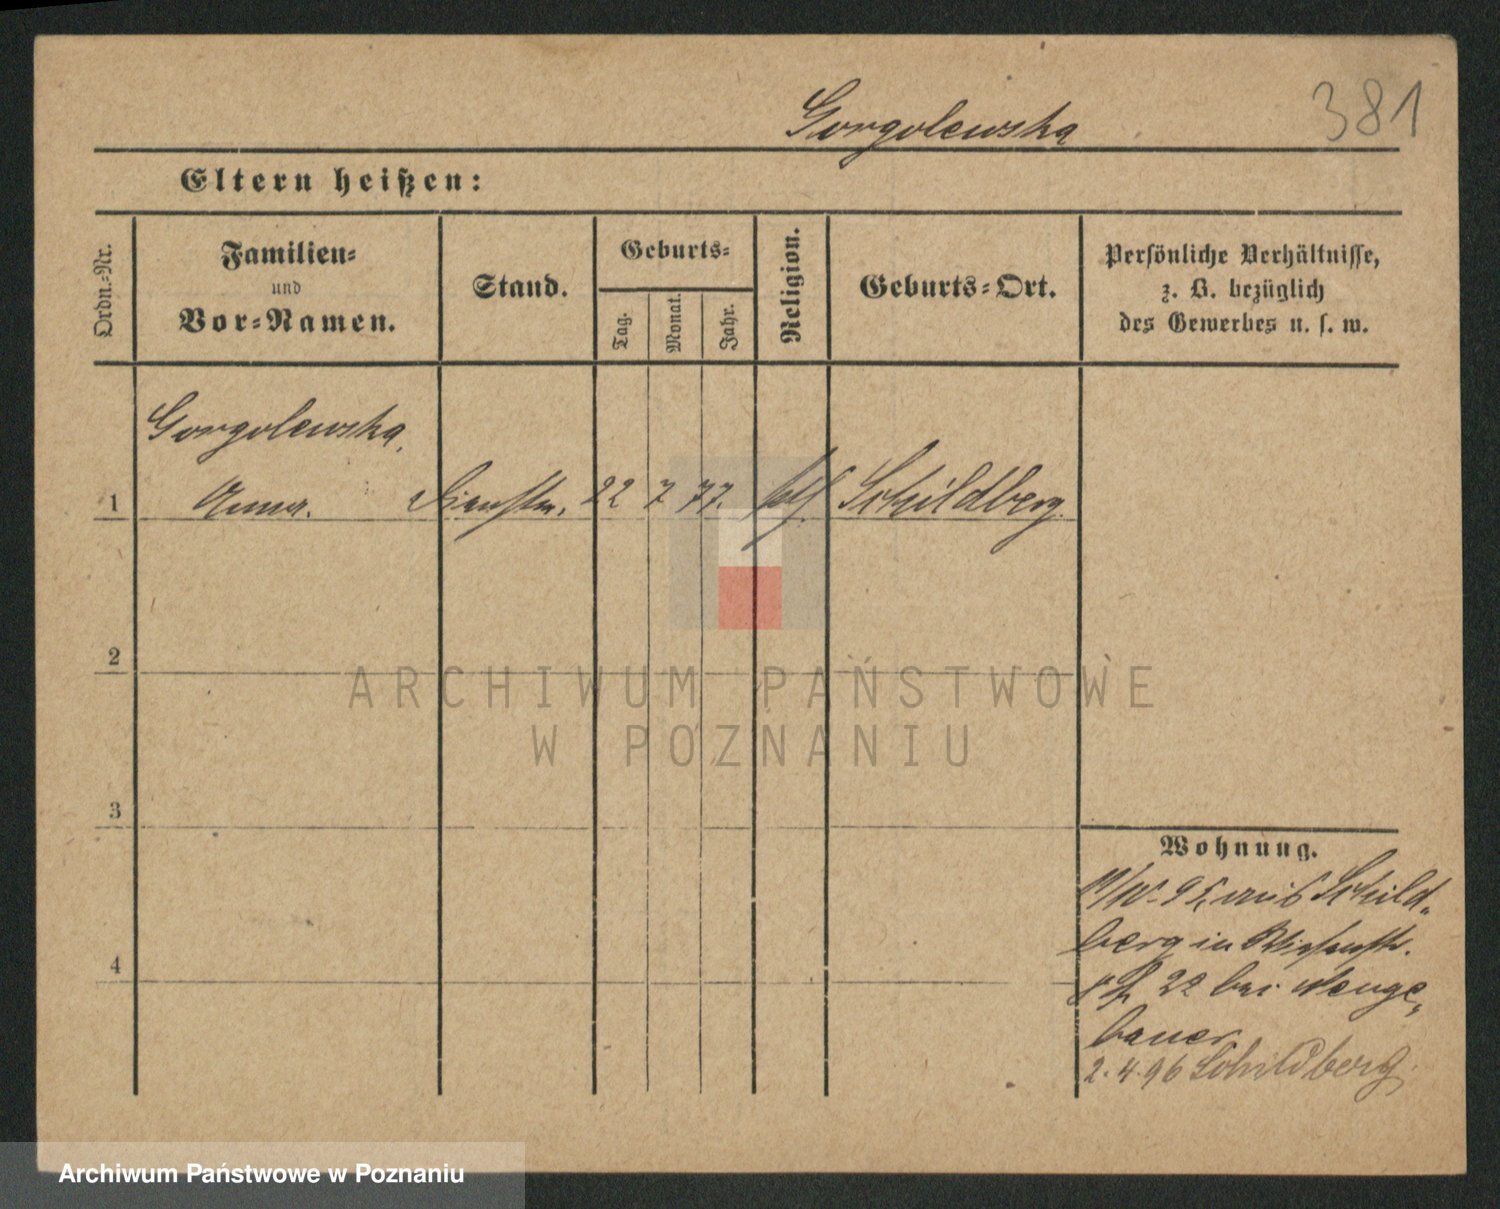 381
Gorgolewska
Eltern heißen:
Ordn.-Nr.
Familien-
und
Vor-Namen.
Stand.
Geburts-
Tag.
Monat.
Jahr.
Religion.
Geburts-Ort.
Persönliche Verhältnisse,
z. B. bezüglich
des Gewerbes u. s. w.
Gorgolewska,
1 Anna. Dienstm. 22 7 77. kth. Schildberg.
2
3
4
ARCHIWUM PAŃSTWOWE
W POZNANIU
Wohnung.
95, aus Schild-
berg in
22 bei Neuge-
bauer
2.4.96 Schildberg.
Archiwum Państwowe w Poznaniu